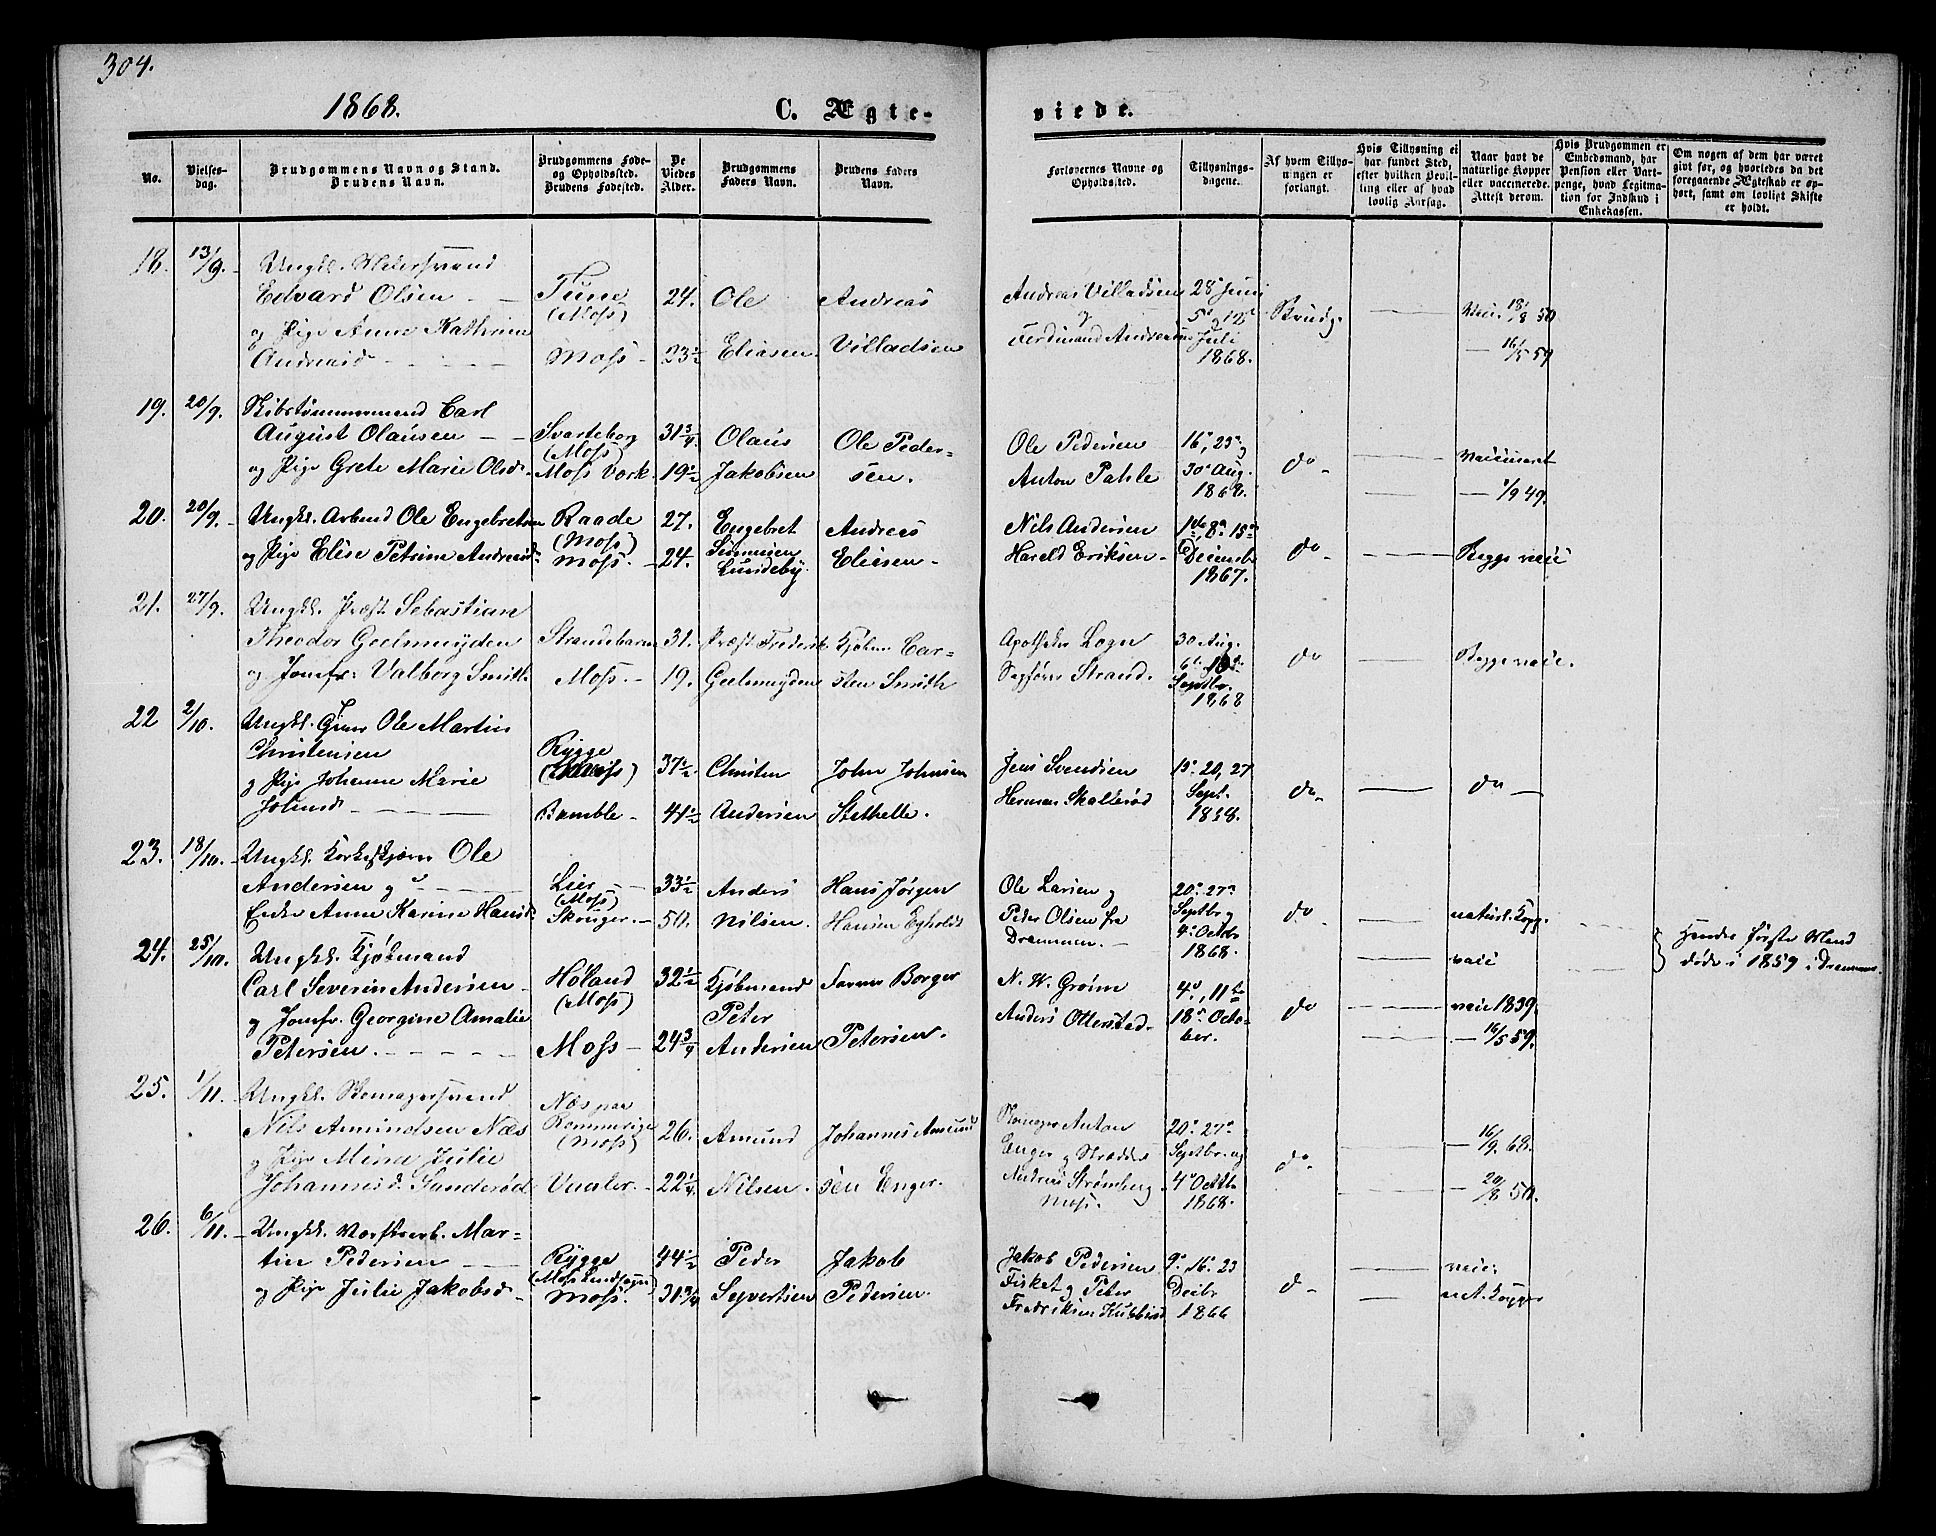 304.
1868.
C. Ægte-
viede.
No.
Vielses-
dag.
Brudgommens Navn og Stand.
Brudens Navn.
Brudgommens Føde-
og Opholdsted.
Brudens Fødested.
De
Viedes
Alder.
Brudgommens
Faders Navn.
Brudens Faders
Navn.
Forlovernes Navne og
Opholdsted.
Tillysnings-
dagene.
Af hvem Tillys-
ningen er
forlangt.
Hvis Tillysning ei
har fundet Sted,
efter hvilken Bevil-
ling eller af hvad
lovlig Aarsag.
Naar havt de
naturlige Kopper
eller vaccinerede.
Attest derom.
Hvis Brudgommen er
Embedsmand, har
Pension eller Vart-
penge, hvad Legitima-
tion for Indskud i
Enkekassen.
Om nogen af dem har været
givt før, og hvorledes da det
foregaaende Ægteskab er op-
hørt, samt om lovligt Skifte
er holdt.
18. 13/9. Ungkl.
Edvard Olsen Tune 24. Ole Andreas
(Moss)
og Pige Anne Kathrine
Andreasd. Moss 23½ Eliasen Villadsen
Andreas Villadsen 28 Juni
og 5te og 12te
Ferdinand Andreasen Juli
1868.
Brudg. Vacc. 18/8 50
16/5 59
19. 20/9. Skibstømmermand Carl
August Olausen Svarteborg 31¾ Olaus Ole Peder-
(Moss)
og Pige Grete Marie Olsd. Moss Værk 19½ Jakobsen sen.
Ole Pedersen 16, 23 og
Anton Pahle 30 Aug.
1868.
do vaccineret
1/9 49.
20. 20/9. Ungkl. Arbmd Ole Engebretsen Raade 27. Engebret Andreas
(Moss)
og Pige Elise Petrine Andreasd. Moss. 24. Lundeby. Eliasen
Nils Andersen 1de, 8, 15
Harald Eriksen Decembr
1867.
do Begge vacc
21. 27/9. Ungkl. Præst Sebastian
Theodor Geelmuyden Strandebarm 31. Præst Frederik Kjøbm. Car-
og Jomfr. Valborg Smith. Moss. 19. Geelmuyden sten Smith
Apotheker Logn 30 Aug.
Sagfører Strand. 6te 13de
Septbr.
1868
do Begge vacc.
22 2/10. Ungkl. Ole Martin
Christensen Rygge 37½ Christen John Johnsen
(Moss)
og Pige Johanne Marie
Johnsd. Bamble 41½ Andersen Stethelle.
Jens Svendsen 13. 20, 27
Herman Skallerød Sept.
1868.
do do
23. 18/10. Ungkl. Ole
Andersen og Lier 33½ Anders Hans Jørgen
(Moss)
Enke Anne Karine Hansd. Skouger. 50. Nilsen. Hansen Egholdt
Ole Larsen og 20. 27
Peder Olsen fra Septbr og
Drammen. 4 Octbr
1868.
do naturl. Kopp.
vacc
Hendes første Mand
døde i 1859 i Drammen.
24. 25/10. Ungkl. Kjøbmand
Carl Severin Andersen Høland 32½ Kjøbmand Farver Borger
(Moss)
og Jomfr. Georgine Amalie Peter
Petersen. Moss 24¾ Andersen Petersen.
N. W. Grønn 4, 11te
Anders Otterstad 18 Octo-
ber.
do vacc 1839.
16/5 59.
25. 1/11. Ungkl.
Nils Amundsen Næs Næs paa
Rommerige 26. Amund Johannes Amund
(Moss)
og Pige Mina Julie
Johannesd. Sanderød Vaaler. 22¼ Nilsen. sen Enger.
Anton 20. 27
Enger og Septbr. og
Andreas Strømberg 4 Octbr
Moss. 1868.
do. 16/9 68.
20/8 50.
26. 6/11. Ungkl. Mar-
tin Pedersen Rygge 44½ Peder Jakob
(Moss Landsogn)
og Pige Julie Jakobsd. Moss. 31¾ Syvertsen Pedersen.
Jakob Pedersen 9. 16. 23
og Peter Decbr
Fredriksen 1866
do vacc.
nat. Kopper